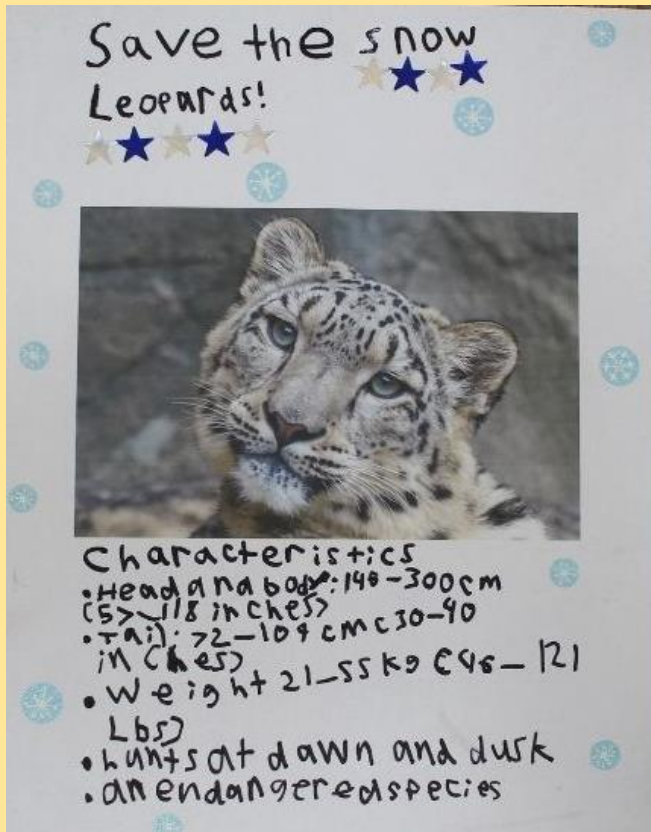 Save the snow
Leopards!
Characteristics
• Head and body: 148-300cm
(57-118 inches)
• Tail: 72-109 cm (30-40
inches)
• Weight 21-55kg (46-121
Lbs)
• hunts at dawn and dusk
• an endangered species